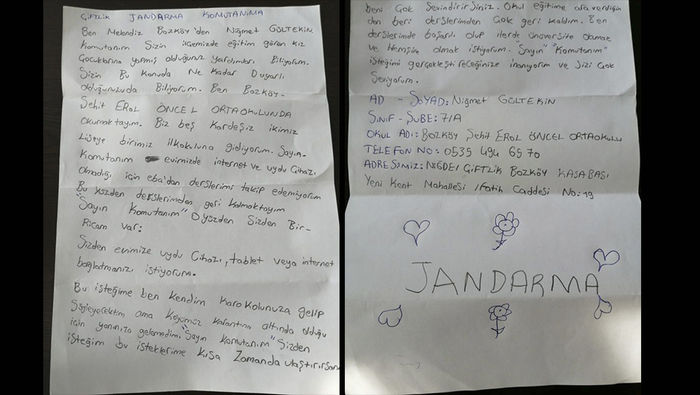 ÇİFTLİK JANDARMA KOMUTANIMA
Ben Melendiz Bozköy'den Nigmet GÜLTEKİN
Komutanım Sizin ilçemizde eğitim gören kız
Çocuklarına yapmış olduğunuz yardımları Biliyorum.
Sizin Bu Konuda Ne Kadar Duyarlı
olduğunuzuda Biliyorum. Ben Bozköy-
Şehit EROL ÖNCEL ORTAOKULUNDA
okumaktayım. Biz beş Kardeşiz ikimiz
Liseye birimiz ilkokuluna gidiyorum. Sayın-
Komutanım evimizde internet ve uydu Cihazı
olmadığı için eba'dan derslerimi takip edemiyorum
Bu yüzden derslerimden geri kalmaktayım
"Sayın Komutanım" Oyüzden Sizden Bir-
Ricam var:
Sizden evimize uydu Cihazı, tablet veya internet
bağlatmanızı istiyorum.
Bu isteğime ben kendim karakolunuza gelip
Söyleyecektim ama Köyümüz karantina altında olduğu
için yanınıza gelemedim. "Sayın Komutanım" Sizden
isteğim bu isteklerime Kısa Zamanda ulaştırırsanız
beni Çok Sevindirirsiniz. Okul eğitime ara verdiğin
den beri derslerimden Çok geri kaldım. Ben
derslerimde başarılı olup ilerde üniversite okumak
ve Hemşire olmak istiyorum. Sayın" Komutanım"
isteğimi gerçekleştireceğinize inanıyorum ve Sizi Çok
Seviyorum.
AD - SOYAD: Nigmet GÜLTEKİN
SINIF - ŞUBE: 7/A
OKUL ADI: BOZKÖY Şehit EROL ÖNCEL ORTAOKULU
TELEFON NO: 0535 494 6570
ADRESİMİZ: NİĞDE/ ÇİFTLİK BOZKÖY KASABASI
Yeni Kent Mahallesi /Fatih Caddesi No: 19
JANDARMA